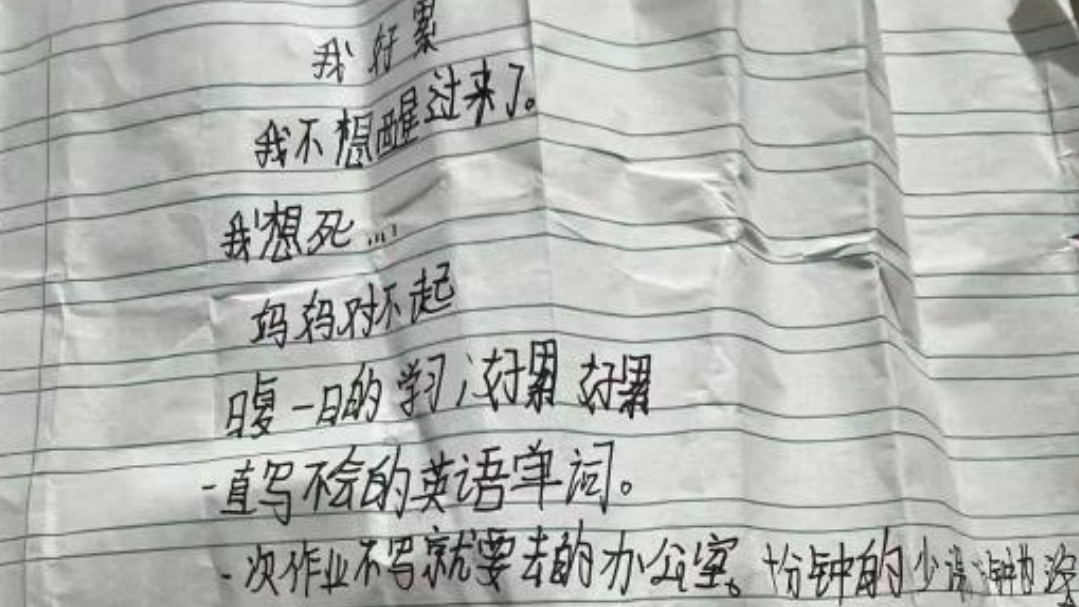 我好累
我不想醒过来了。
我想死...
妈妈对不起
日复一日的学习,好累 好累
一直写不会的英语单词。
一次作业不写就要去的办公室。十份钟的少